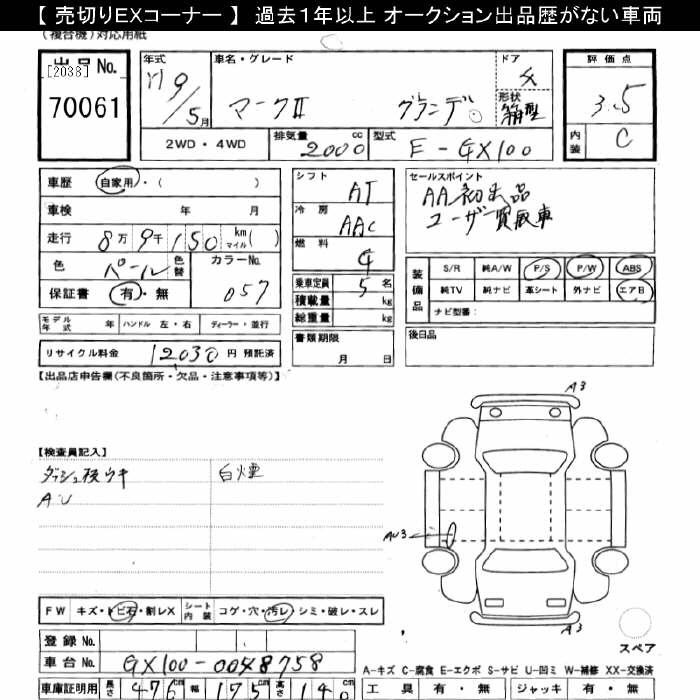 【 売切りEXコーナー 】 過去1年以上 オークション出品歴がない車両
(複合機)対応用紙
出品No.
[2038]
70061
年式
H9/5月
車名・グレード
マークII グランデ
ドア
4
形状
箱型
評価点
3.5
内装
C
2WD・4WD
排気量 2000 cc
型式 E-GX100
車歴 自家用・( )
車検 年 月
走行 8万9千150 km マイル( )
色 パール 色替
カラーNo. 057
保証書 有・無
シフト AT
冷房 AAC
燃料 G
乗車定員 5名
積載量 kg
総重量 kg
セールスポイント
AA初出品
ユーザー買取車
装備品
S/R 純A/W P/S P/W ABS
純TV 純ナビ 革シート 外ナビ エアB
ナビ型番:
モデル年式 年 ハンドル 左・右 ディーラー・並行
書類期限
月 日
後日品
リサイクル料金 12030 円 預託済
【出品店申告欄(不良箇所・欠品・注意事項等)】
A3
【検査員記入】
ダッシュ板ウキ 白煙
A.U
AU3
FW キズ・トビ石・割レX シート内装 コゲ・穴・汚レ・シミ・破レ・スレ
A3
スペア
登録No.
車台No. GX100-0048758
A-キズ C-腐食 E-エクボ S-サビ U-凹ミ W-補修 XX-交換済
車庫証明用 長さ 476cm 幅 175cm 高さ 140
工具 有・無 ジャッキ 有・無